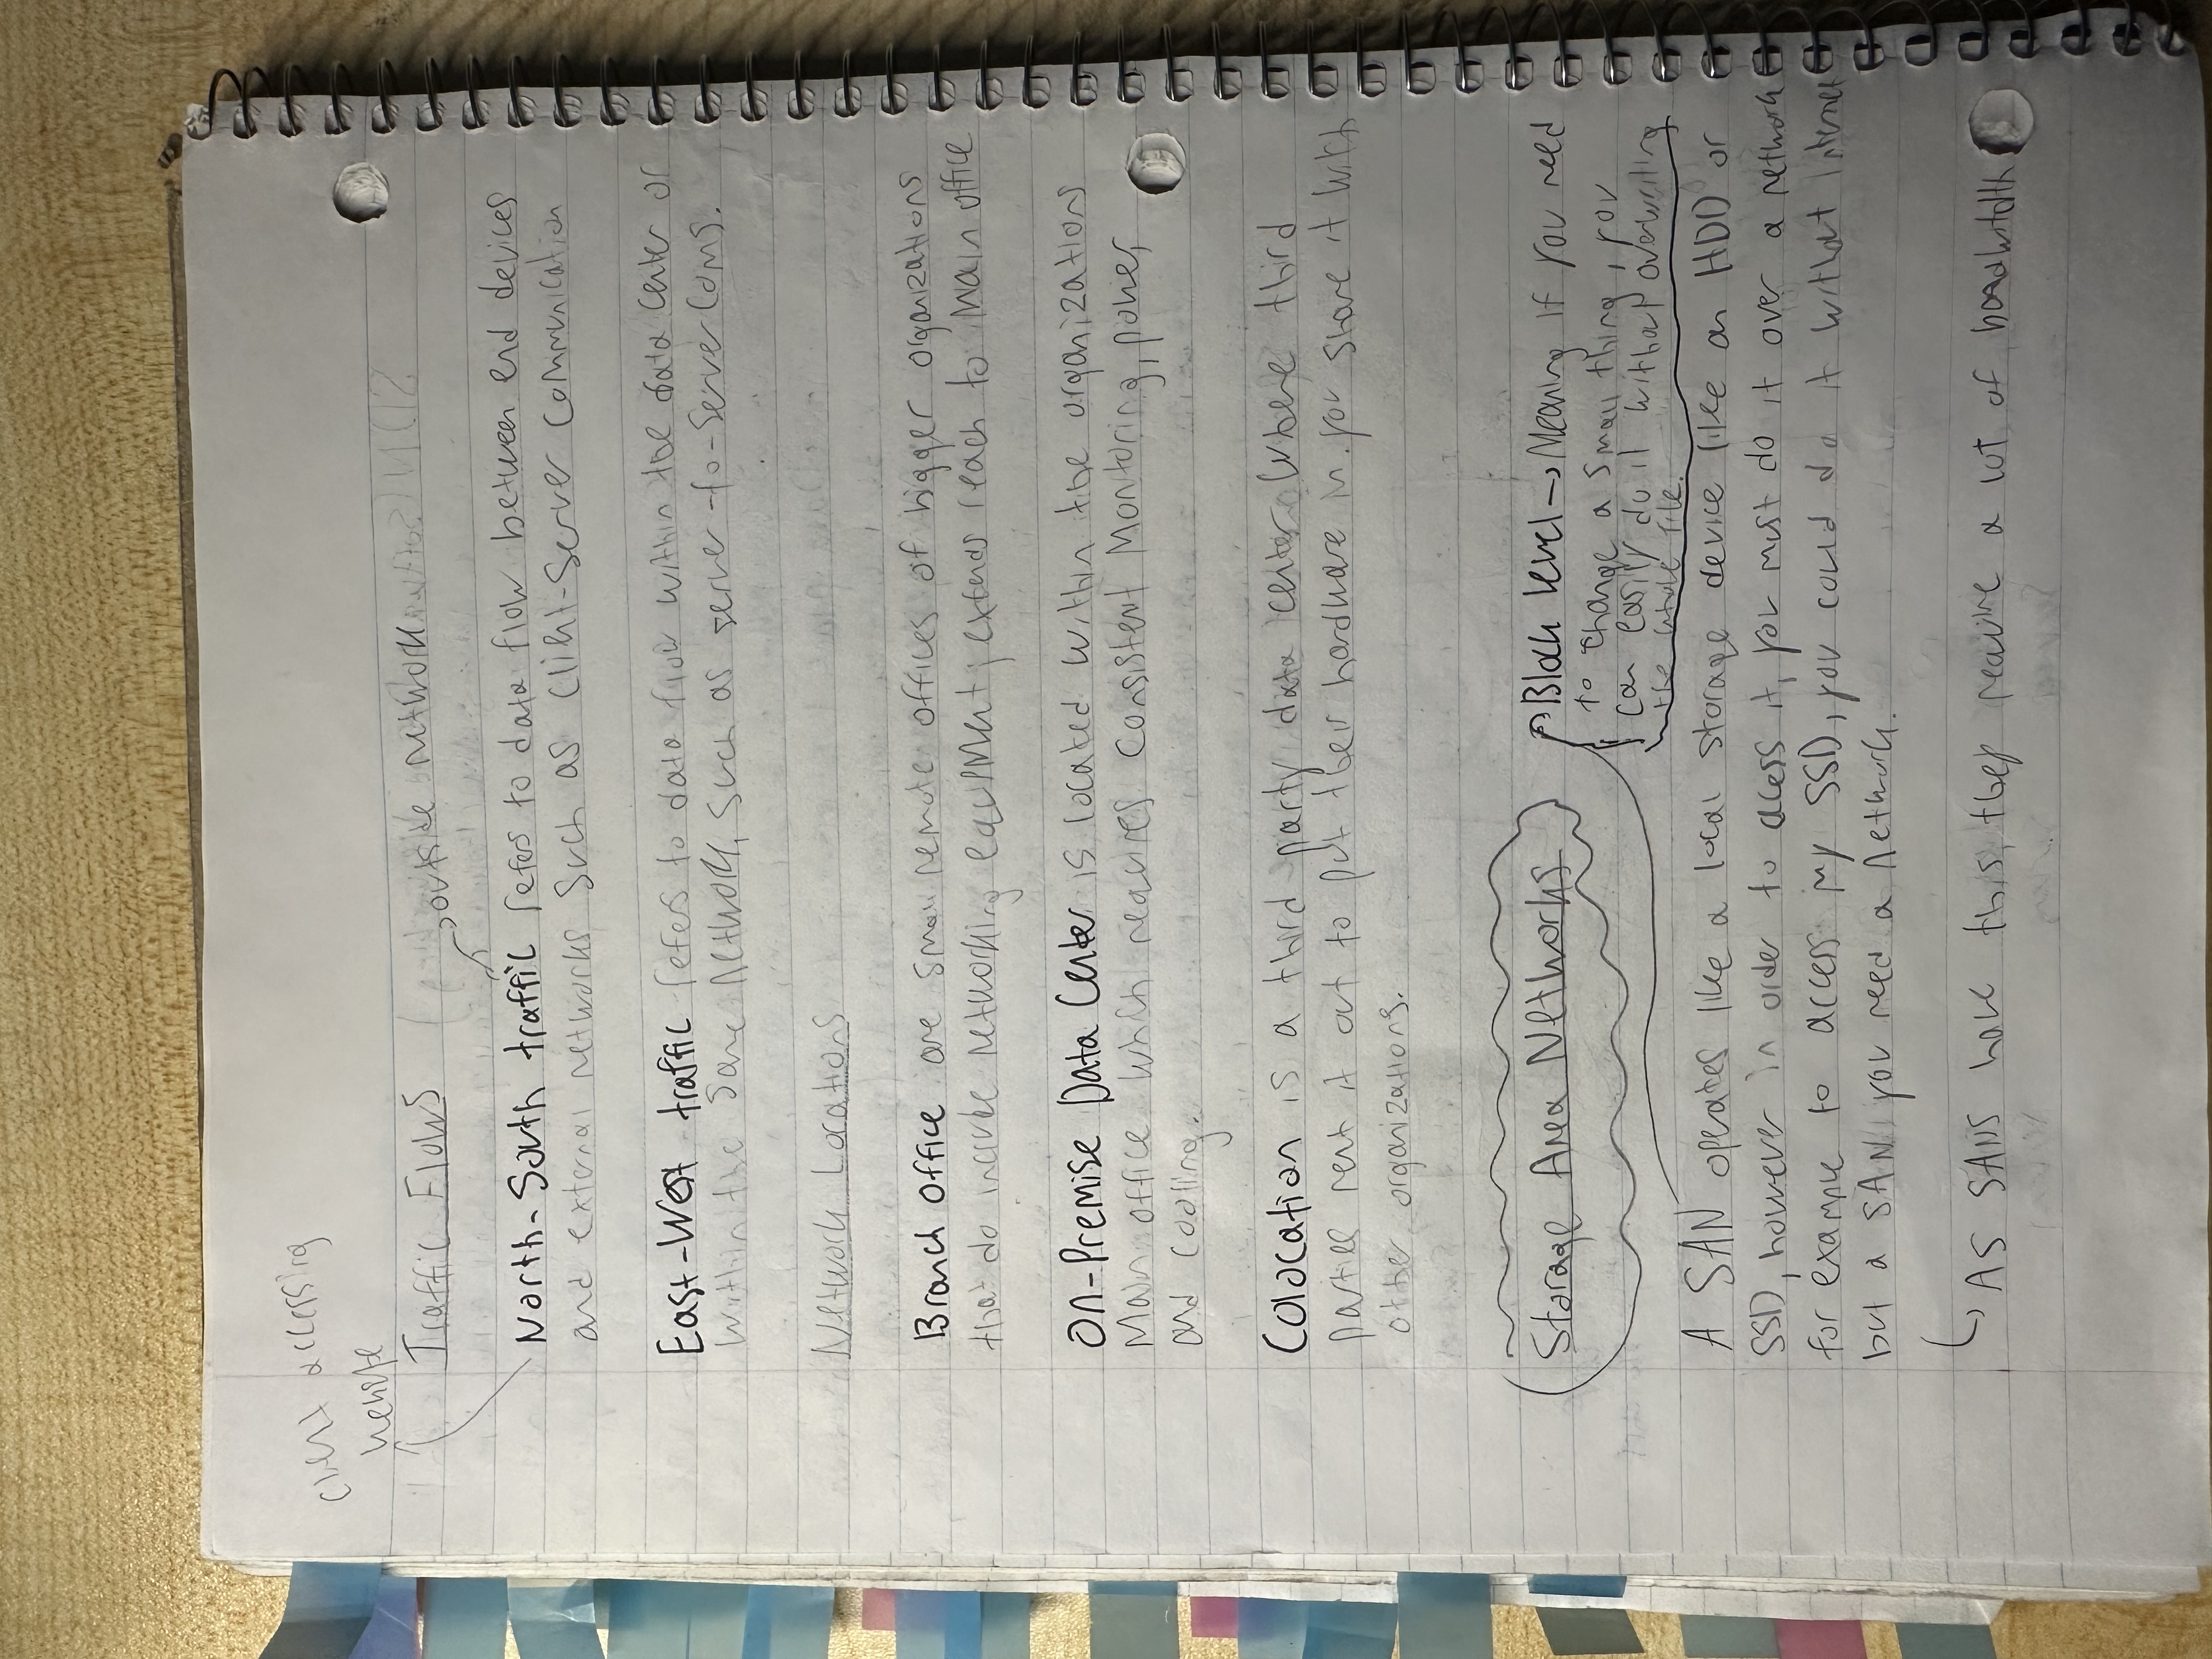 client accessing
website
Traffic Flows
outside network
North-South traffic refers to data flow between end devices
and external networks such as client-server communication
East-West traffic refers to data flow within the data center or
within the same network, such as server-to-server coms.
Network Locations
Branch office are small remote offices of bigger organizations
that do include networking equipment; extends reach to main office
On-Premise Data Center is located within the organizations
main office which requires consistent monitoring, power,
and cooling.
Colocation is a third party data center where third
parties rent it out to put their hardware in. you share it with
other organizations.
Storage Area Networks
Block level → Meaning if you need
to change a small thing, you
can easily do it without overwriting
the whole file.
A SAN operates like a local storage device like an HDD or
SSD, however in order to acess it, you must do it over a network
for example to access my SSD, you could do it without internet
but a SAN you need a network.
As SANs have this, they require a lot of